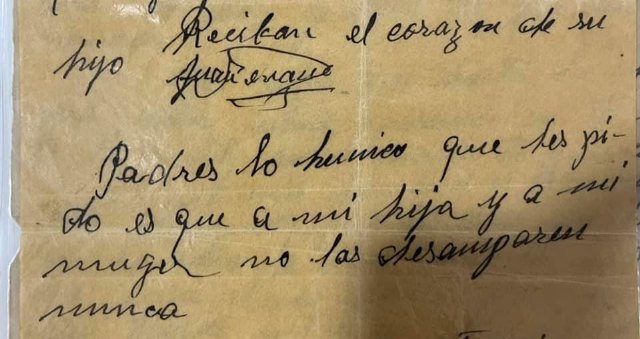 Reciban el corazon de su
hijo
Padres lo hunico que les pi-
do es que a mi hija y a mi
muger no las desamparen
nunca